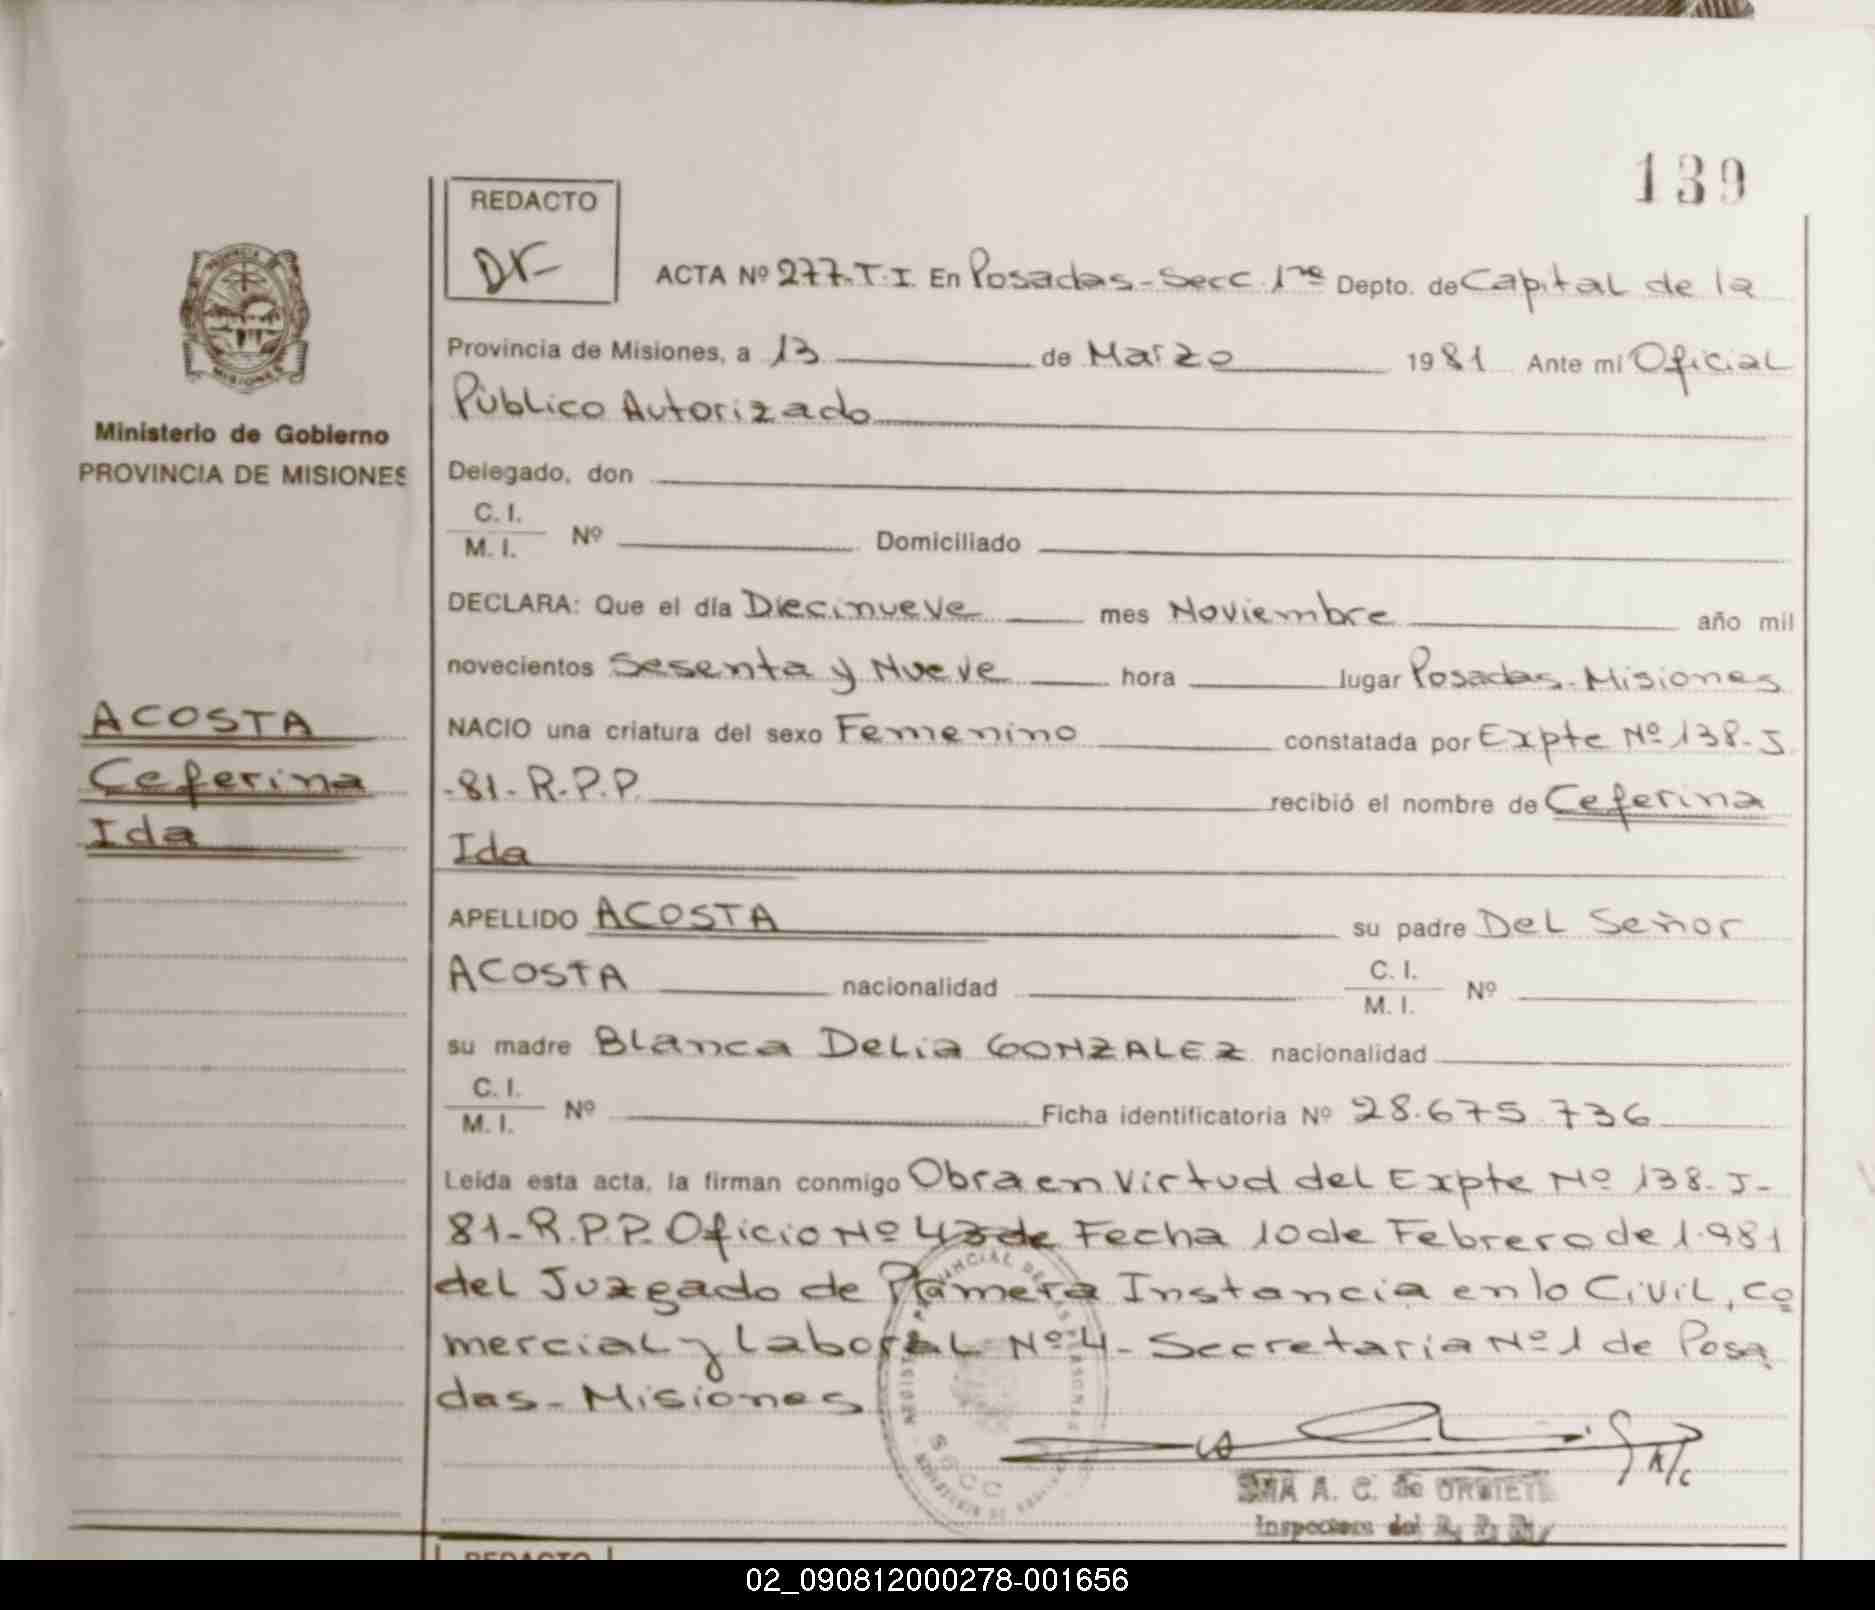 139
REDACTO
Dr-
ACTA Nº 277.T.I. En Posadas-Secc. 1re Depto. de Capital de la
Provincia de Misiones, a 13 de Marzo 1981 Ante mi Oficial
Público Autorizado
Ministerio de Gobierno
PROVINCIA DE MISIONES
Delegado, don
C. I.
M. I. Nº Domiciliado
DECLARA: Que el día Diecinueve mes Noviembre año mil
novecientos Sesenta y Nueve hora lugar Posadas-Misiones
ACOSTA
Ceferina
Ida
NACIO una criatura del sexo Femenino constatada por Expte Nº 138-J.
-81-R.P.P. recibió el nombre de Ceferina
Ida
APELLIDO ACOSTA su padre Del Señor
ACOSTA nacionalidad C. I.
M. I. Nº
su madre Blanca Delia GONZALEZ nacionalidad
C. I.
M. I. Nº Ficha identificatoria Nº 28.675.736
Leída esta acta, la firman conmigo Obra en Virtud del Expte Nº 138-J-
81-R.P.P. Oficio Nº 43 de Fecha 10 de Febrero de 1.981
del Juzgado de Primera Instancia en lo Civil, Co
mercial y Laboral Nº 4- Secretaria Nº 1 de Posa
das-Misiones
A. C. de
Inspectora del
REDACTO
02_090812000278-001656